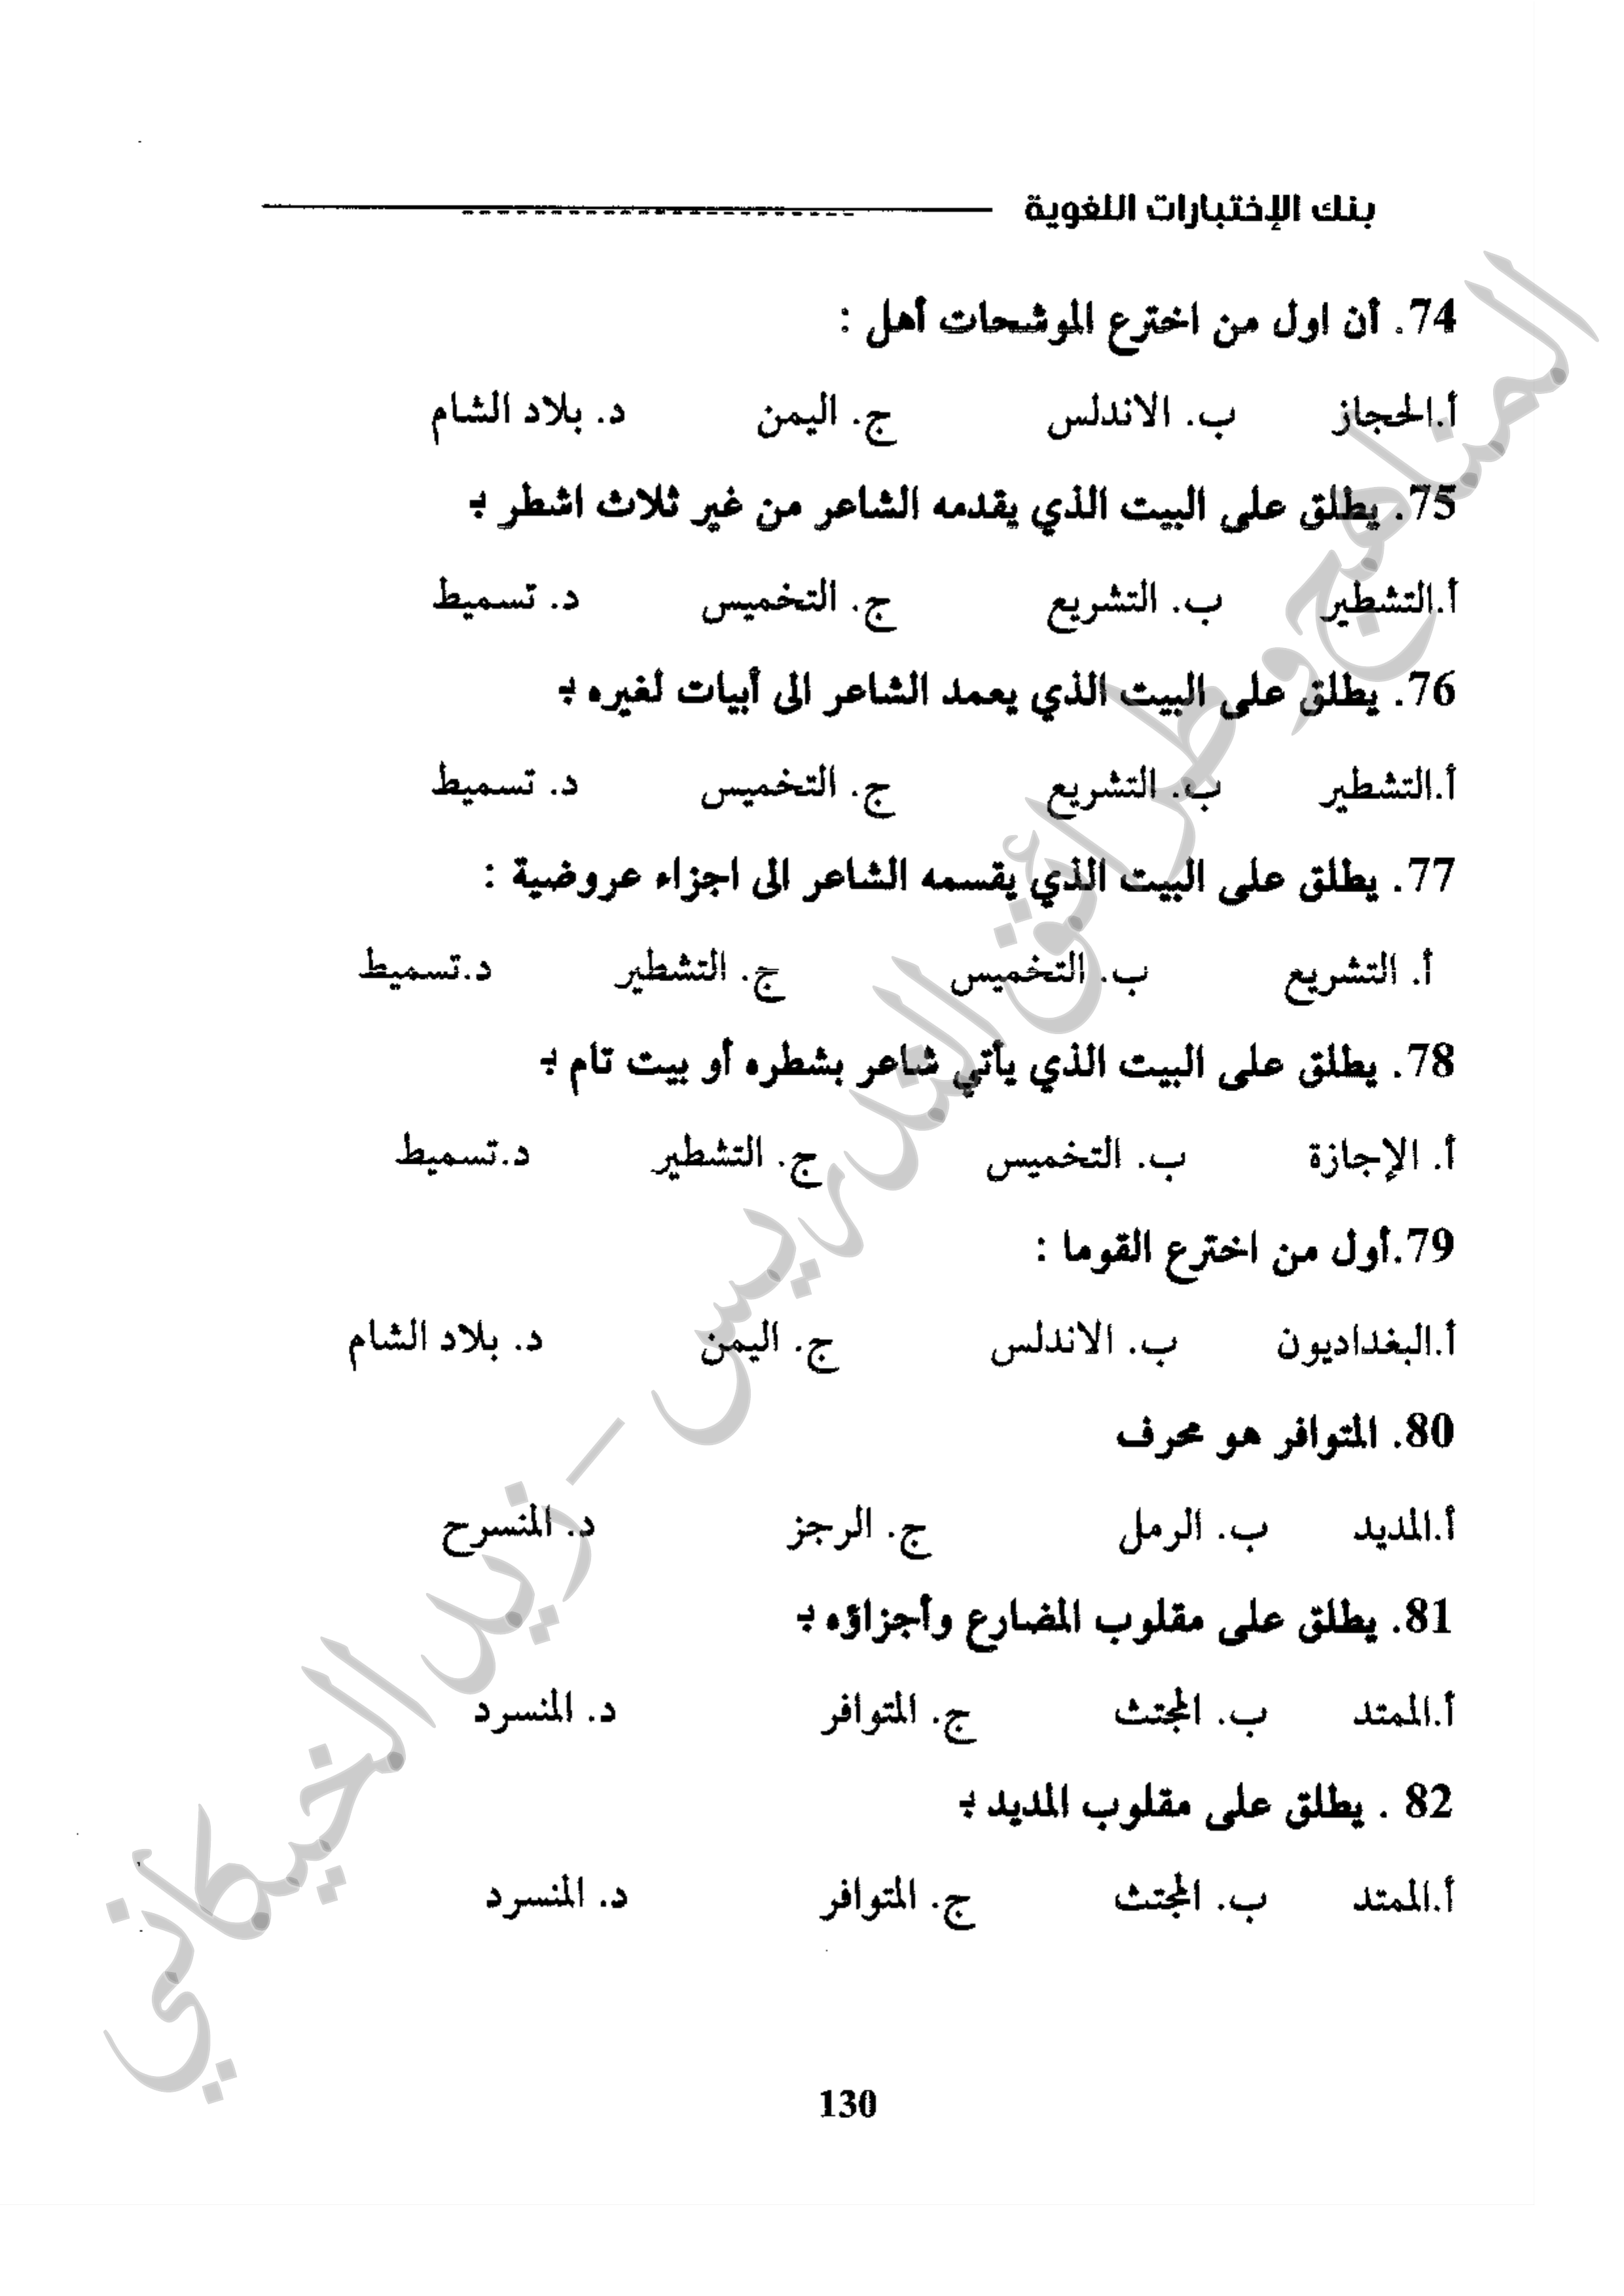 بنك الإختبارات اللغوية
74. أن اول من اخترع الموشحات أهل :
أ.الحجاز ب. الاندلس ج. اليمن د. بلاد الشام
75. يطلق على البيت الذي يقدمه الشاعر من غير ثلاث اشطر بـ
أ.التشطير ب. التشريع ج. التخميس د. تسميط
76. يطلق على البيت الذي يعمد الشاعر الى أبيات لغيره بـ
أ.التشطير ب. التشريع ج. التخميس د. تسميط
77. يطلق على البيت الذي يقسمه الشاعر الى اجزاء عروضية :
أ. التشريع ب. التخميس ج. التشطير د.تسميط
78. يطلق على البيت الذي يأتي شاعر بشطره أو بيت تام بـ
أ. الإجازة ب. التخميس ج. التشطير د.تسميط
79.أول من اخترع القوما :
أ.البغداديون ب. الاندلس ج. اليمن د. بلاد الشام
80. المتوافر هو محرف
أ.المديد ب. الرمل ج. الرجز د. المنسرح
81. يطلق على مقلوب المضارع وأجزاؤه بـ
أ.الممتد ب. المجتث ج. المتوافر د. المنسرد
82 . يطلق على مقلوب المديد بـ
أ.الممتد ب. المجتث ج. المتوافر د. المنسرد
130
المناهج وطرائق التدريس – زيد الخيكاني